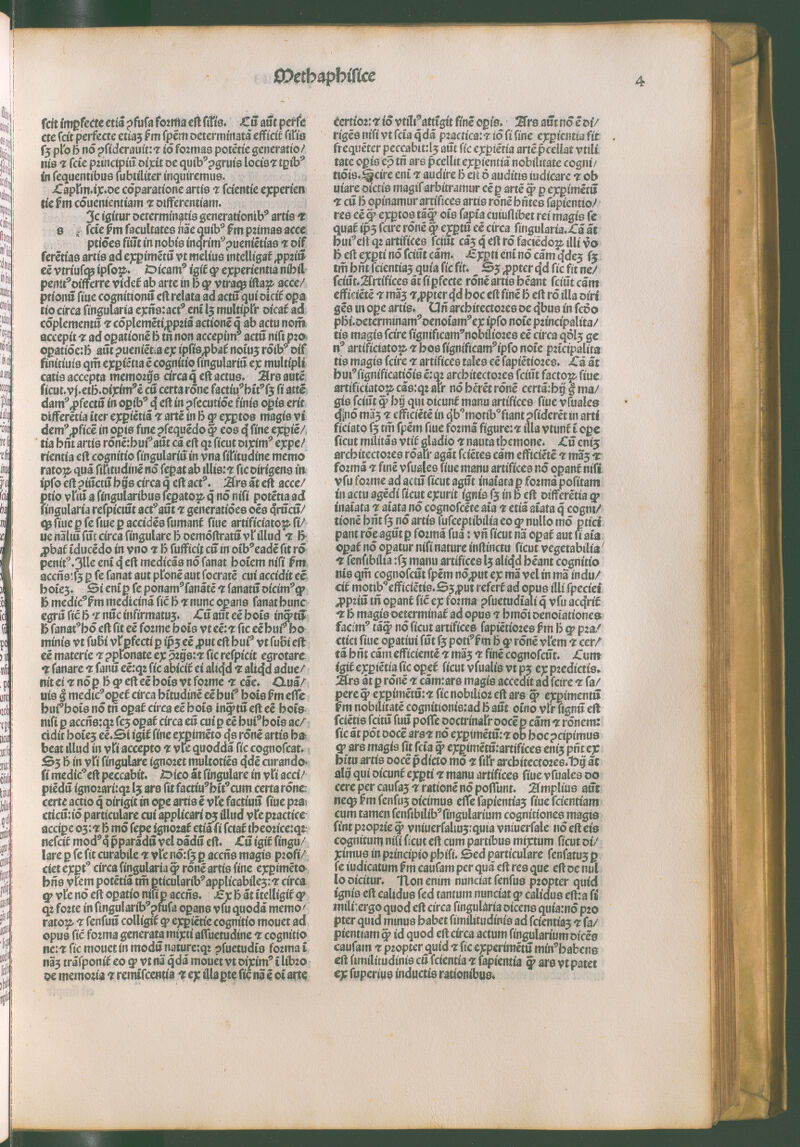 Methaphisice
4
scit impfecte etiā ꝯfusa forma est silis. Cū aūt perfe
cte scit perfecte etiaꝫ ẜm spēm determinatā efficit̄ silis
sꝫ pło ꝧ nō ꝯsiderauit: ⁊ iō formas potētie generatio/
nis ⁊ scīe principiū dixit de quibꝰ ꝯgruis locis ⁊ tp̄ibꝰ
in sequentibus subtiliter inquiremus.
Caplm̄.ix. de cōparatione artis ⁊ scientie experien
tie ẜm conuenientiam ⁊ differentiam.
Jc igitur determinatis generationibꝰ artis ⁊
s scīe ẜm facultates nāe quibꝰ ẜm primas acce
ptiōes siūt in nobis inqrimꝰ ꝯueniētias ⁊ dif
ferētias artis ad expimētū vt melius intelligat̄ ꝓpriū
eē vtriusqꝫ ipsoꝝ. Dicamꝰ igit̄ ꝙ experientia nihil
penitꝰ differre videt̄ ab arte in ꝧ ꝙ vtraqꝫ istaꝝ acce/
ptionū siue cognitionū est relata ad actū qui dicit̄ opa
tio circa singularia exn̄s: actꝰ eni lꝫ multiplr̄ dicat̄ ad
cōplementū ⁊ cōplemēti ꝓpriā actionē q̄ ab actu nom̄
accepit ⁊ ad opationē ꝧ tn̄ non accepimꝰ actū nisi pro
opatiōe: ꝧ aūt ꝯueniēt:a ex ipsis ꝓbat̄ noīuꝫ rōibꝰ dif
finitiuis qm̄ expiētia ē cognitio singulariū ex multipli
catis accepta memorijs circa q̄ est actus. Ars autē
sicut .vj. eth. diximꝰ ē cū certa rōne factiuꝰ hītꝰ sꝫ si attē
damꝰ ꝓfectū in opibꝰ q̄ est in ꝯsecutiōe finis opis erit
differētia iter expiētiā ⁊ artē in ꝧ ꝙ exptos magis vi
demꝰ ꝓficē in opis fine ꝯsequēdo ꝙ̄ eos q̄ sine expiē/
tia hn̄t artis rōnē: huiꝰ aūt cā est qꝛ sicut diximꝰ expe/
rientia est cognitio singulariū in vna silitudine memo
ratoꝝ quā silitudinē nō sepat ab illis: ⁊ sic dirigens in
ipso est ꝯiūctū hijs circa q̄ est actꝰ. Ars āt est acce/
ptio vl̄iū a singularibus sepatoꝝ q̄ nō nisi potētia ad
singularia respiciūt actꝰ aūt ⁊ generatiōes oēs q̄rūcū/
qꝫ siue p se siue p accidēs sumant̄ siue artificiatoꝝ si/
ue nāliū sūt circa singulare ꝧ demōstratū vl̄ illud ⁊ ꝧ
ꝓbat̄ iducēdo in vno ⁊ ꝧ sufficit̄ cū in oībꝰ eadē sit rō
penitꝰ. Ille eni q̄ est medicās nō sanat hoīem nisi ẜm
accn̄s: sꝫ p se sanat aut pl̄onē aut socratē cui accidit eē
hoīeꝫ. Si eni p se ponamꝰ sanātē ⁊ sanatū dicimꝰ ꝙ
ꝧ medicꝰ ẜm medicinā sic̄ ꝧ ⁊ nunc opans sanat hunc
egrū sic̄ ꝧ ⁊ nūc infirmatuꝫ. Cū aūt eē hoīs inq̄tū
ꝧ sanatꝰ hō est sit eē forme hoīs vt eē: ⁊ sic eē huiꝰ ho
minis vt subi vl̄ pfecti p ipꝫ eē ꝓut est huiꝰ vt subi est
eē materie ⁊ ꝓpłonate ex ꝓrijs: ⁊ sic respicit egrotare
⁊ sanare ⁊ sanū eē: qꝛ sic abicit̄ ei aliqd ⁊ aliqd adue/
nit ei ⁊ nō p ꝧ ꝙ est eē hoīs vt forme ⁊ cāe. Quāꝰ
uis g̊ medicꝰ opet̄ circa hitudinē eē huiꝰ hoīs ẜm esse
huiꝰ hoīs nō tn̄ opat̄ circa eē hoīs inq̄tū est eē hoīs
nisi p accn̄s: qꝛ sꝫ opat̄ circa eū cui p eē huiꝰ hoīs ac/
cidit hoīeꝫ eē. Si igit̄ sine expimēto q̄s rōnē artis ha
beat illud in vl̄i accepto ⁊ vl̄e quoddā sic cognoscat.
Sꝫ ꝧ in vl̄i singulare ignoret multotiēs qdē curando.
si medicꝰ est peccabit. Dico āt singulare in vl̄i acci/
piēdū ignorari: qꝛ lꝫ ars sit factiuꝰ hītꝰ cum certa rōne:
certe actio q̄ dirigit in ope artis ē vl̄e factiuū siue pra
cticū: iō particulare cui applicari dꝫ illud vl̄e practice
accipe oꝫ: ⁊ ꝧ mō sepe ignorat̄ etiā si sciat̄ theorice: qꝛ
nescit̄ modꝰ q̄ p̄paradū vel dādū est. Cū igit̄ singu/
lare p se sit curabile ⁊ vl̄e nō: sꝫ p accn̄s magis profi/
ciet exptꝰ circa singularia ꝙ̄ rōnē artis sine expimēto
hn̄s vl̄em potētiā tm̄ pticularibꝰ applicabileꝫ: ⁊ circa
ꝙ vl̄e nō est opatio nisi p accn̄s. Ex ꝧ āt itelligit̄ ꝙ
qꝛ forte in singularibꝰ ꝯfusa opans vsu quodā memo/
ratoꝝ ⁊ sensuū colligit̄ ꝙ expiētie cognitio mouet ad
opus sic̄ forma generata mixti assuetudine ⁊ cognitio
ne: ⁊ sic mouet in modū nature: qꝛ ꝯsuetudīs forma ī
nāꝫ trāsponit̄ eo ꝙ vt nā q̄dā mouet vt diximꝰ ī libro
de memoria ⁊ remīscentia ⁊ ex illa pte sic̄ nā ē oī arte
certior: ⁊ iō vtiliꝰ attigit finē opis. Ars aūt nō ē di/
rigēs nisi vt scīa q̄dā practica: ⁊ iō si sine expientia sit
frequēter peccabit: lꝫ aūt sic expiētia artē p̄cellat vtili
tate opis eꝯ tn̄ ars p̄cellit expientiā nobilitate cogni/
tiōis. Scire eni ⁊ audire ꝧ est ō auditis iudicare ⁊ ob
uiare dictis magis arbitramur eē p artē ꝙ̄ p expimētū
⁊ cū ꝧ opinamur artifices artis rōnē hn̄tes sapientio/
res eē ꝙ̄ exptos tāq̄ꝫ oīs sapīa cuiuslibet rei magis se
quat̄ ipꝫ scire rōnē ꝙ̄ exptū eē circa singularia. Cā āt
huiꝰ est qꝛ artifices sciūt cāꝫ q̄ est rō faciēdoꝝ illi vo
ꝧ est expti nō sciūt cām. Expti eni nō cām qdeꝫ sꝫ
tm̄ hn̄t scientiaꝫ quia sic sit. Sꝫ ꝓpter qd sic sit ne/
sciūt. Artifices āt si pfecte rōnē artis hēant sciūt cām
efficiētē ⁊ māꝫ ⁊ ꝓpter qd hoc est finē ꝧ est rō illa diri
gēs in ope artis. Un̄ architectores de q̄bus in scd̄o
phi. determinamꝰ denoīamꝰ ex ipso noīe principalita/
tis magis scire significamꝰ nobiliores eē circa qōlꝫ ge
nꝰ artificiatoꝝ ⁊ hos significamꝰ ipso noīe prīcipalita
tis magis scire ⁊ artifices tales eē sapiētiores. Cā āt
huiꝰ significatiōis ē: qꝛ architectores sciūt factoꝝ siue
artificiatoꝝ cās: qꝛ al̄r nō hēret rōnē certā: hij g̊ ma/
gis sciūt ꝙ̄ hij qui dicunt̄ manu artifices siue vsuales
q̄ nō māꝫ ⁊ efficiētē in q̄bꝰ motibꝰ fiant ꝯsiderēt in arti
ficiato sꝫ tm̄ spēm siue formā figure: ⁊ illa vtunt̄ ī ope
sicut militās vtit̄ gladio ⁊ nauta themone. Cū eniꝫ
architectores rōal̄r agāt sciētes cām efficiētē ⁊ māꝫ ⁊
formā ⁊ finē vsuales siue manu artifices nō opant̄ nisi
vsu forme ad actū sicut agūt inaīata p formā positam
in actu agēdi sicut exurit ignis sꝫ in ꝧ est differētia ꝙ
inaīata ⁊ aīata nō cognoscēte aīa ⁊ etiā aīata q̄ cogni/
tionē hn̄t sꝫ nō artis susceptibilia eo ꝙ nullo mō ptici
pant rōe agūt p formā suā: vn̄ sicut nā opat̄ aut si aīa
opat̄ nō opatur nisi nature instinctu sicut vegetabilia
⁊ sensibilia: sꝫ manu artifices lꝫ aliqd hēant cognitio
nis qm̄ cognoscūt spēm nō ꝓut ex mā vel in mā indu/
cit̄ motibꝰ efficiētis. Sꝫ put refert̄ ad opus illi speciei
ꝓpriū in̄ opant̄ sic̄ ex forma ꝯsuetudiali q̄ vsu acqrit̄
⁊ ꝧ magis determinat̄ ad opus ⁊ hmōi denoīationes
facimꝰ tāq̄ꝫ nō sicut artifices sapiētiores ẜm ꝧ ꝙ pra/
ctici siue opatiui sūt sꝫ potiꝰ ẜm ꝧ ꝙ rōnē vl̄em ⁊ cer/
tā hn̄t cām efficientē ⁊ māꝫ ⁊ finē cognoscūt. Cum
igit̄ expiētia sic opet̄ sicut vsualis vt pꝫ ex predictis.
Ars āt p rōnē ⁊ cām: ars magis accedit ad scire ⁊ sa/
pere ꝙ̄ expimētū: ⁊ sic nobilior est ars ꝙ̄ expimentū
ẜm nobilitatē cognitionis: ad ꝧ aūt oīno vl̄r signū est
sciētis scitū suū posse doctrinal̄r docē p cām ⁊ rōnem:
sic āt pōt docē ars ⁊ nō expimētū: ⁊ ob hoc ꝯcipimus
ꝙ ars magis sit scīa ꝙ̄ expimētū: artifices eniꝫ pn̄t ex
hītu artis docē p̄dicto mō ⁊ sil̄r architectores. Hij āt
alij qui dicunt̄ expti ⁊ manu artifices siue vsuales do
cere per causaꝫ ⁊ rationē nō possunt. Amplius aūt
neqꝫ ẜm sensuꝫ dicimus esse sapientiaꝫ siue scientiam
cum tamen sensibilibꝰ singularium cognitiones magis
sint proprie ꝙ̄ vniuersaliuꝫ: quia vniuersale nō est eis
cognitum nisi sicut est cum partibus mixtum sicut di/
ximus in principio phisi. Sed particulare sensatuꝫ p
se iudicatum ẜm causam per quā est res que est de nul
lo dicitur. Non enim nunciat sensus propter quid
ignis est calidus sed tantum nunciat ꝙ calidus est: a si
mili: ergo quod est circa singularia dicens quia: nō pro
pter quid minus habet similitudinis ad scientiaꝫ ⁊ sa/
pientiam ꝙ̄ id quod est circa actum singularium dicēs
causam ⁊ propter quid ⁊ sic experimētū minꝰ habens
est similitudinis cū scientia ⁊ sapientia ꝙ̄ ars vt patet
ex superius inductis rationibus.